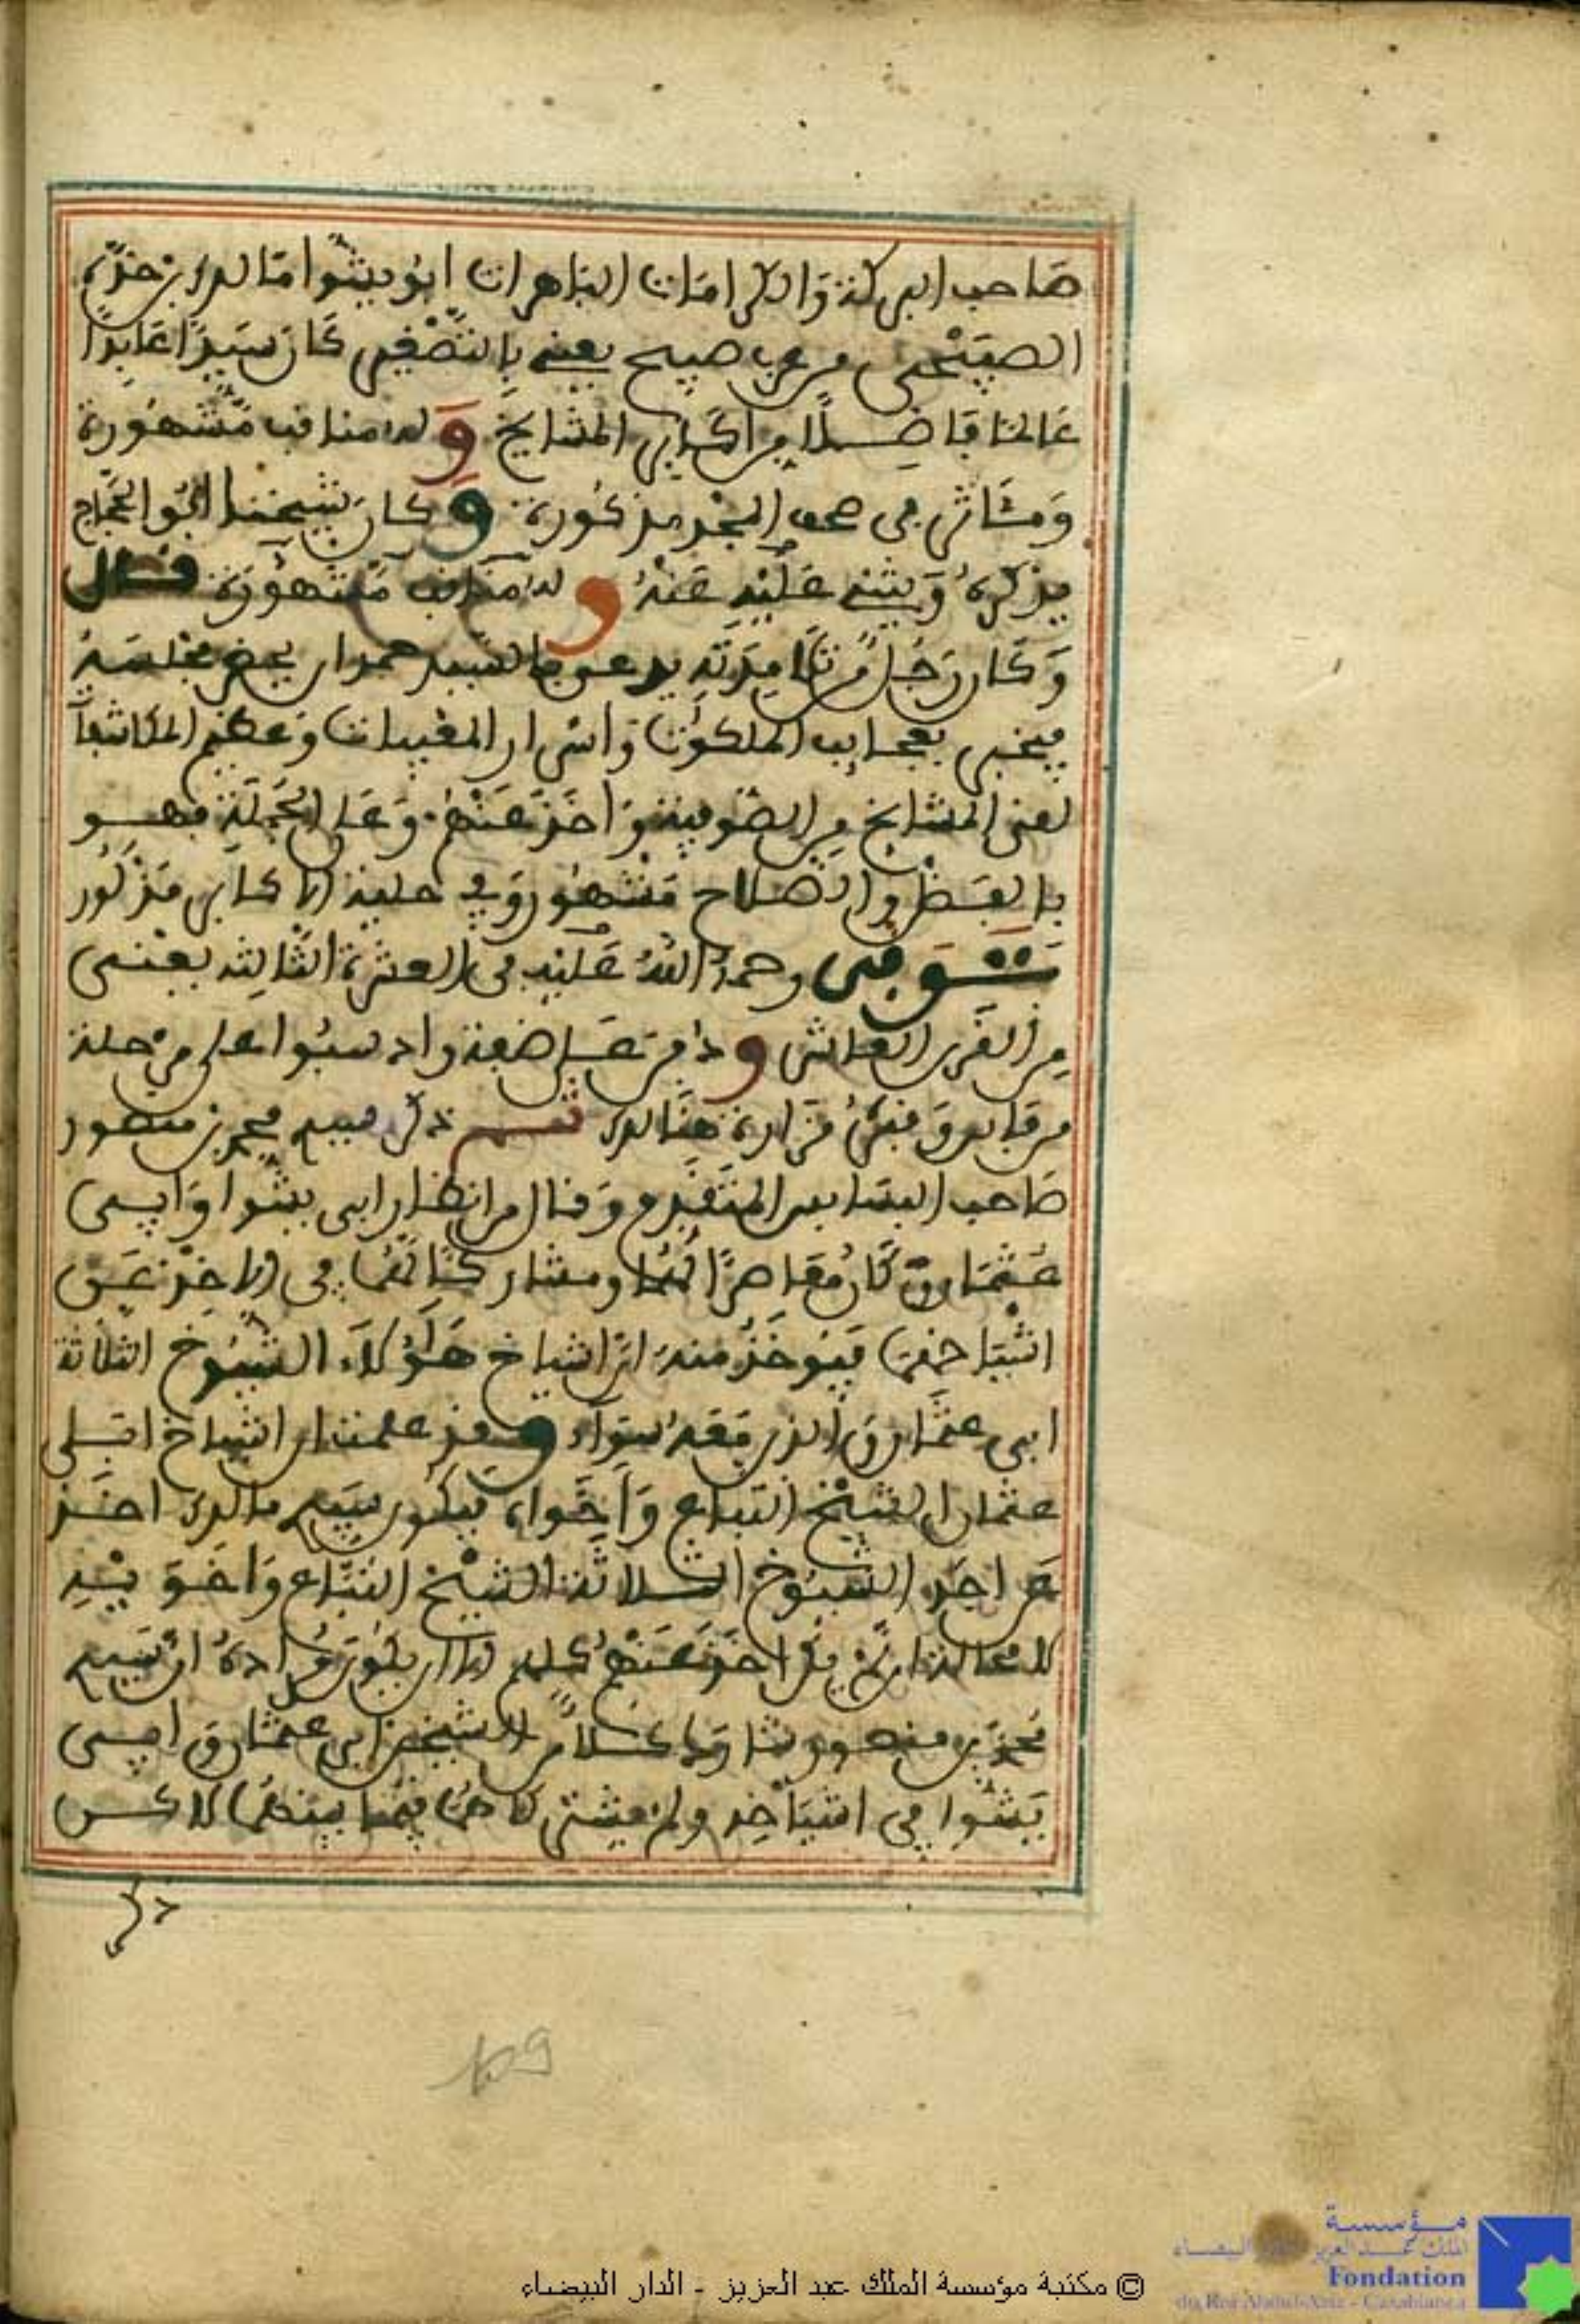 صاحب البركة والكرامات الباهرات ابو يشوا مالك بن خدة
الصبيحي من عرب صبيح يعني بالتصغير كان سيدا عابدا
عالما فاضلا من اكابر المشايخ وله مناقب مشهورة
ومئاثر في صحف المجد مذكورة وكان شيخنا ابو الحجاج
يذكره ويثني عليه عنه وله مناقب مشهورة قال
وكان رجل من تلامذته يدعى بالسيد حمدان يحضر مجلسه
فيخبر بعجايب الملكوت واسرار المغيبات وعظيم المكاشفات
لقي المشايخ من الصوفية واخذ عنهم وعلى الجملة فهو
بالفضل والصلاح مشهور وفي حلية الاكابر مذكور
توفي رحمة الله عليه في العشرة الثالثة يعني
من القرن العاشر ودفن على ضفة واد سبوا على مرحلة
من فاس وقبره مزارة هنالك ثم ذكر سيدي محمد بن منصور
صاحب البسابس المتقدم وقال من انظار ابي يشوا وابي
عثمان وكان معاصرا لهما ومشاركا لهما في الاخذ عن
اشياخهما فيوخذ منه ان اشياخ هؤلاء الشيوخ الثلاثة
ابي عثمان والذين معه سواء وقد علمت ان اشياخ ابي
عثمان الشيخ التباع واخواه فيكون سيدي مالك اخذ
عن احد الشيوخ الثلاثة الشيخ التباع واخويه
لا محالة ان لم يكن اخذ عنهم كلهم الا ان يكون مراده ان سيدي
محمد بن منصور شارك كلا من الشيخين ابي عثمان وابي
يشوا في اشياخه ولم يشتركا هما فيما بينهما لاكن
ذكر
159
© مكتبة مؤسسة الملك عبد العزيز - الدار البيضاء
مؤسسة
الملك عبد العزيز الدار البيضاء
Fondation
du Roi Abdul-Aziz - Casablanca